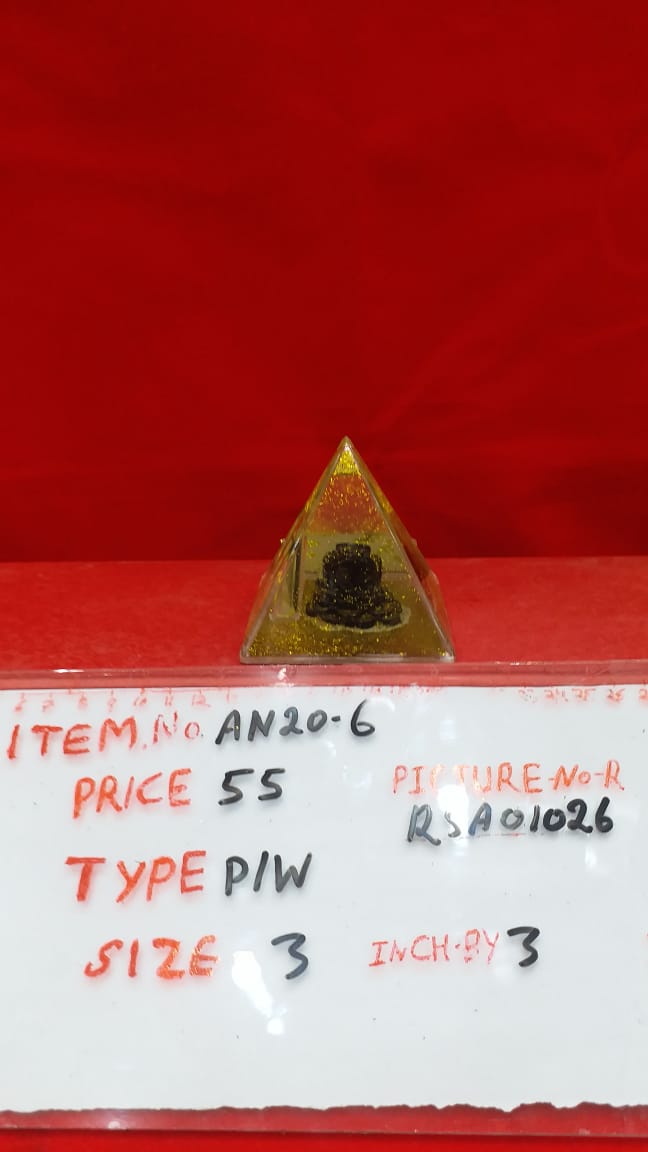 ITEM.No. AN20-6
PRICE 55
PICTURE-No-R
RSA01026
TYPE P/W
SIZE 3 INCH-BY 3